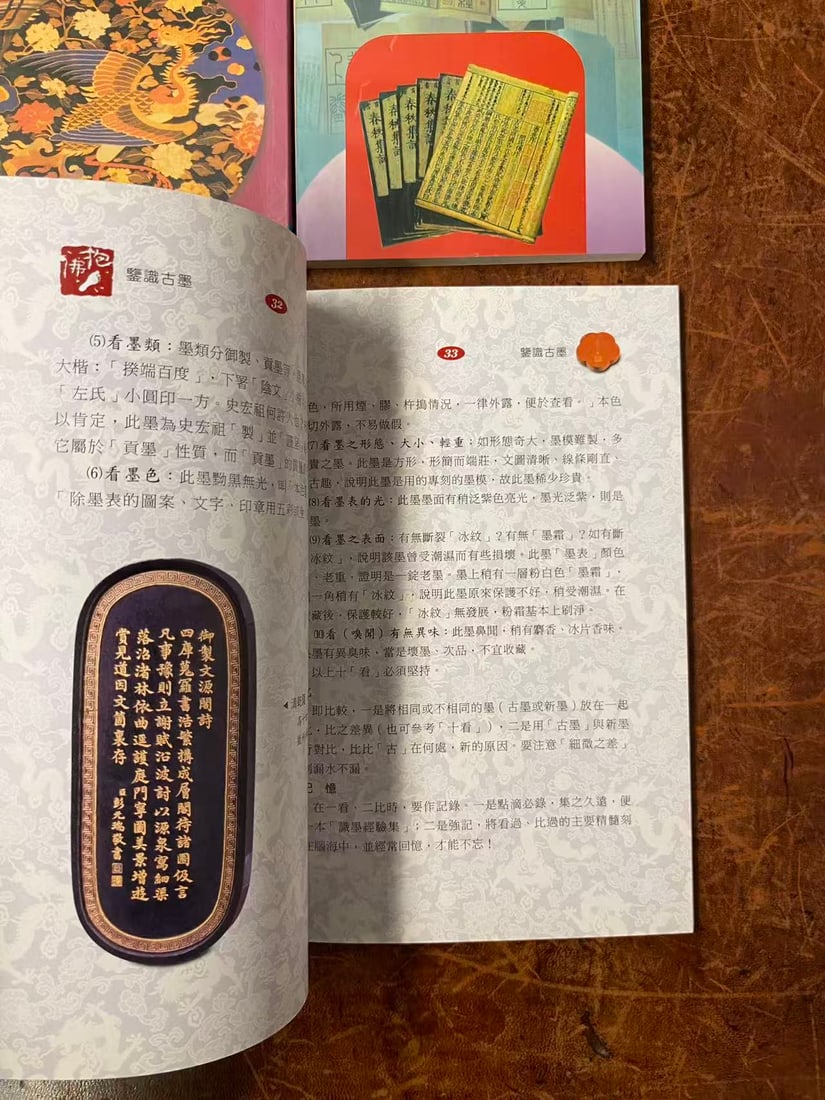 春秋集註
春秋集註
春秋集註
春秋集註
鑒識古墨
32
⑸看墨類：墨類分御製、貢墨
大楷：「揆端百度」，下署「陰文」
「左氏」小圓印一方。史宏祖何許人也
以肯定，此墨為史宏祖「製」並「
它屬於「貢墨」性質，而「貢墨」的
⑹看墨色：此墨黝黑無光，明
「除墨表的圖案、文字、印章用五彩
御製文源閣詩
四庫蒐羅書浩繁構成層閣待諸園伋言
凡事豫則立謝賦沿波討以源泉寫細渠
落沿渚林依曲逕護庭門寧圖美景增遊
賞見道因文箇裏存
臣彭元瑞敬書
33
鑒識古墨
色，所用煙、膠、杵搗情況，一律外露，便於查看。」本色
切外露，不易做假。
⑺看墨之形態、大小、輕重：如形態奇大，墨模難製，多
貴之墨。此墨是方形、形簡而端莊，文圖清晰、線條剛直、
古趣，說明此墨是用的專刻的墨模，故此墨稀少珍貴。
⑻看墨表的光：此墨墨面有稍泛紫色亮光，墨光泛紫，則是
墨。
⑼看墨之表面：有無斷裂「冰紋」？有無「墨霜」？如有斷
冰紋」，說明該墨曾受潮濕而有些損壞。此墨「墨表」顏色
、老重，證明是一錠老墨。墨上稍有一層粉白色「墨霜」，
一角稍有「冰紋」，說明此墨原來保護不好，稍受潮濕。在
藏後，保護較好，「冰紋」無發展，粉霜基本上刷淨。
⑽看（嗅聞）有無異味：此墨鼻聞，稍有麝香、冰片香味。
墨有異臭味，當是壞墨、次品，不宜收藏。
以上十「看」必須堅持。
即比較，一是將相同或不相同的墨（古墨或新墨）放在一起
，比之差異（也可參考「十看」），二是用「古墨」與新墨
行對比，比比「古」在何處，新的原因。要注意「細微之差」
滴水不漏。
記 憶
在一看，二比時，要作記錄。一是點滴必錄，集之久遠，便
一本「識墨經驗集」；二是強記，將看過、比過的主要精髓刻
在腦海中，並經常回憶，才能不忘！